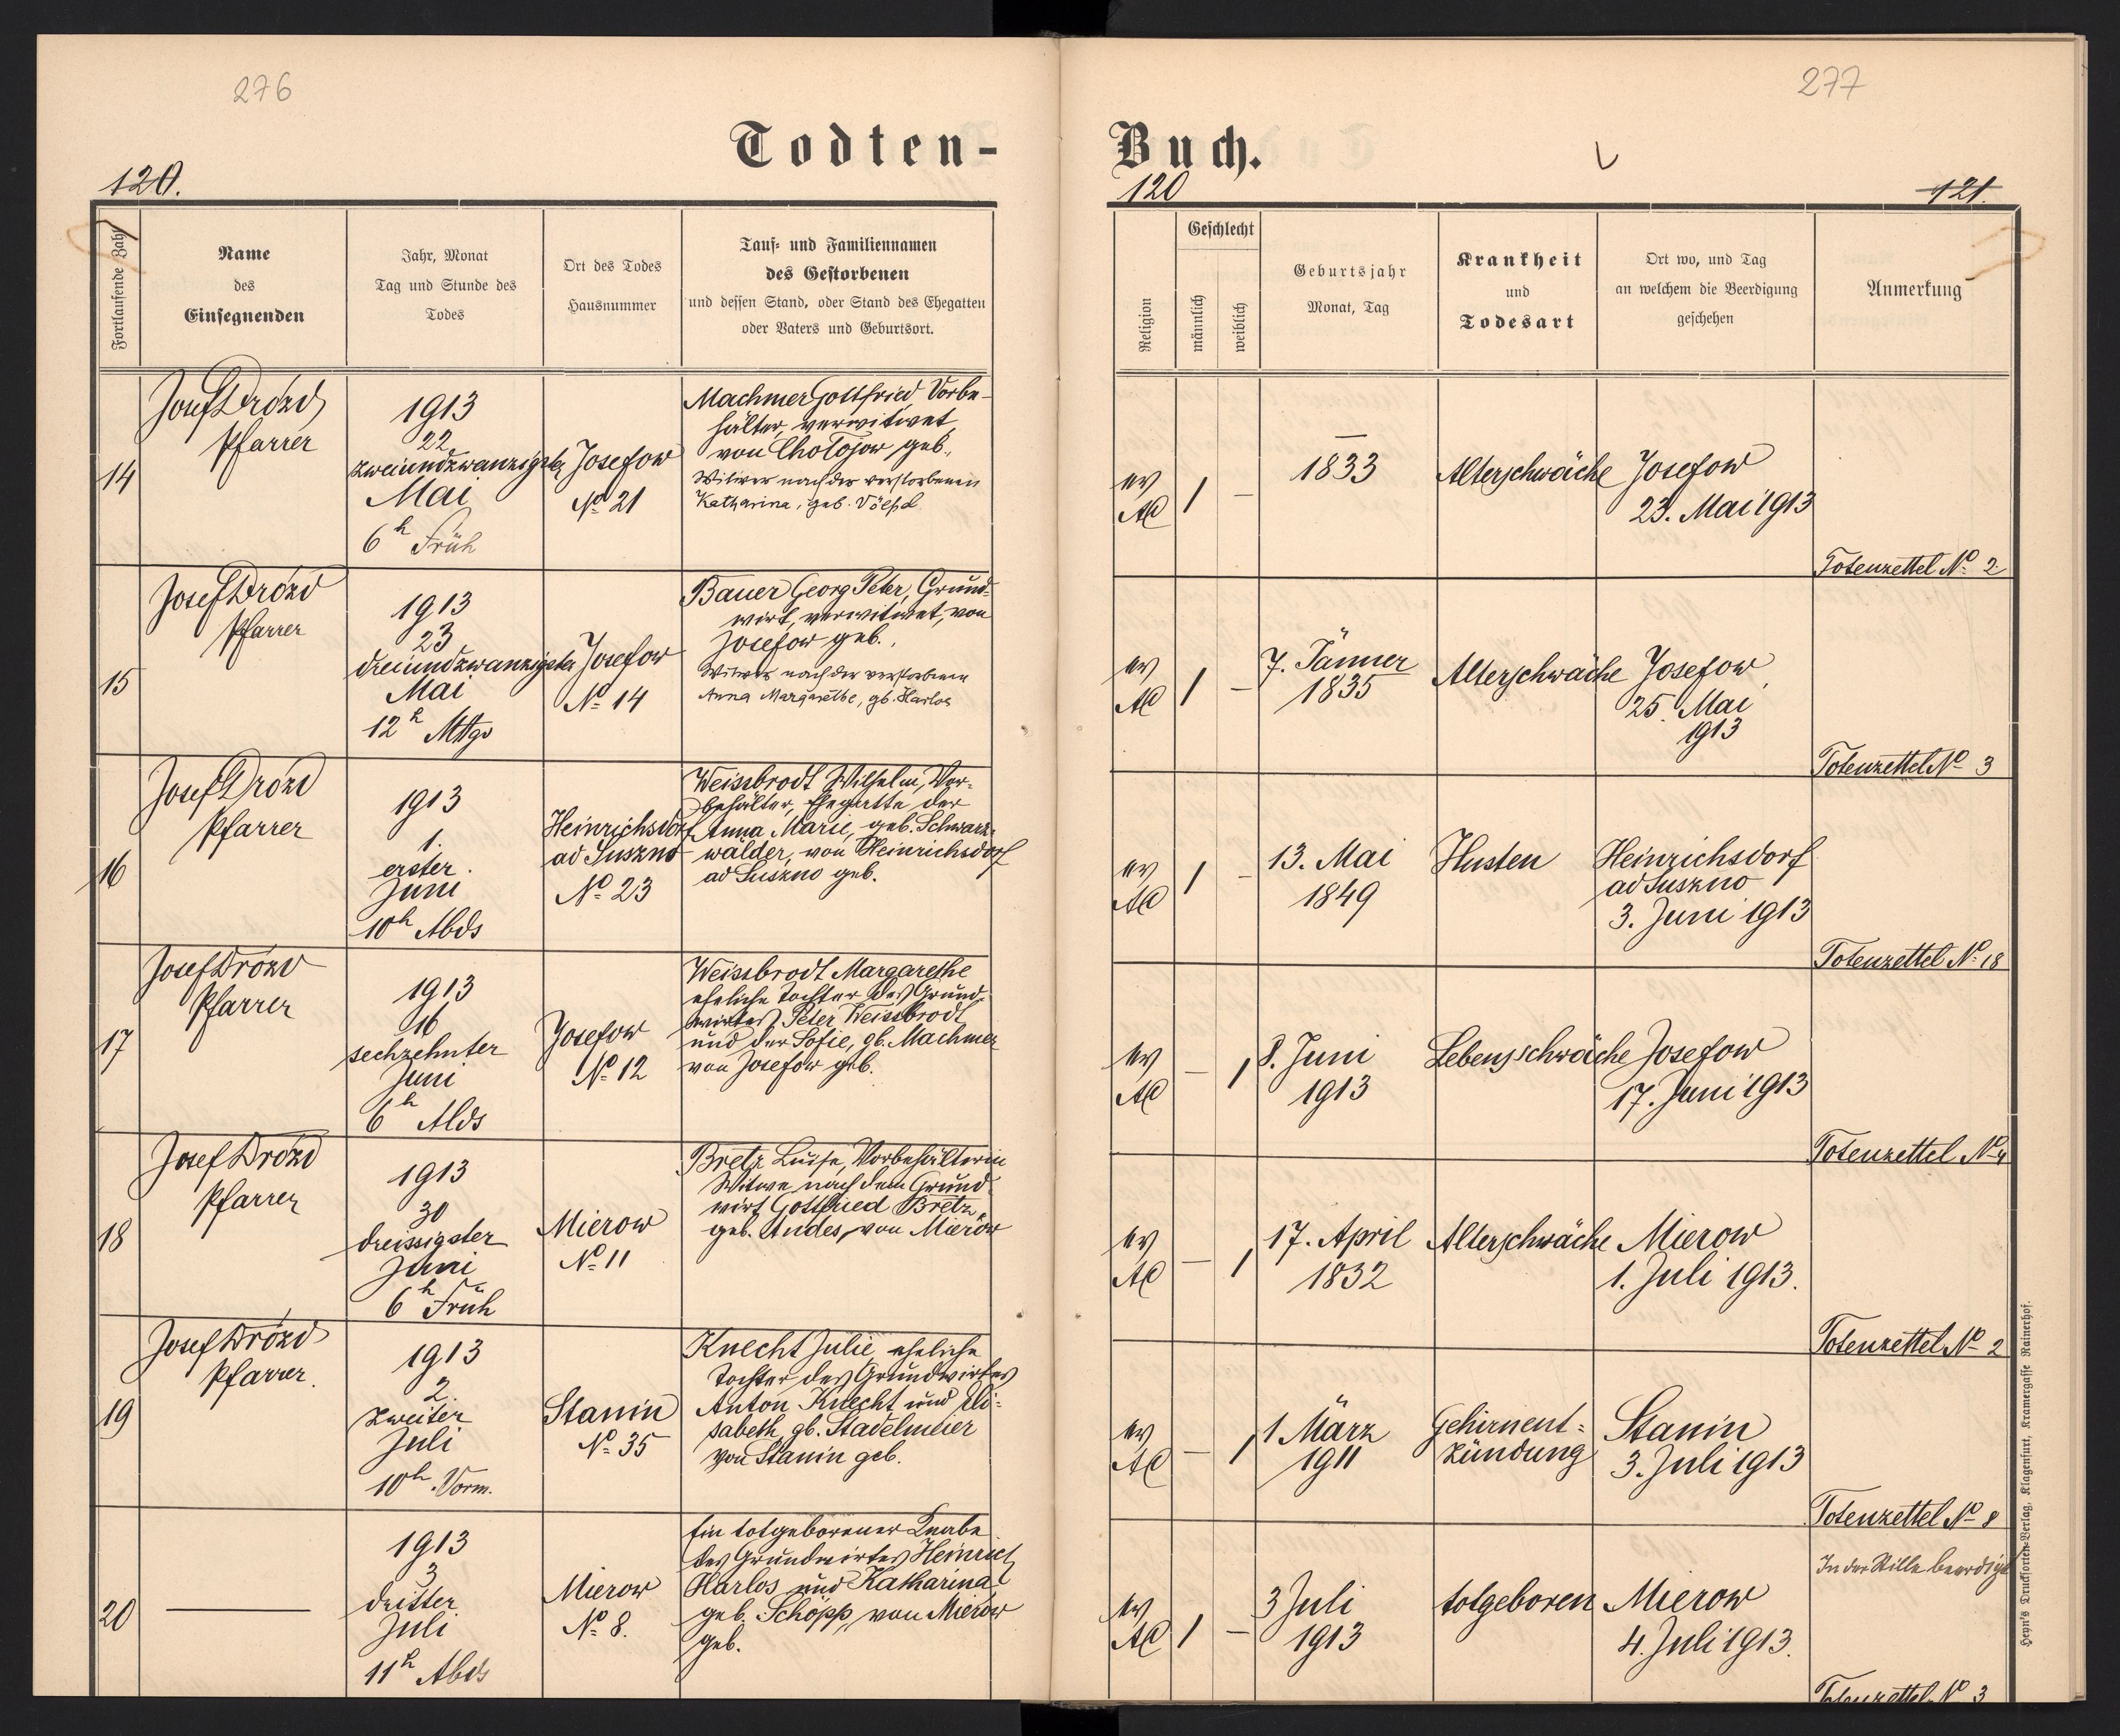 276
277
Todten-
Buch.
120.
120
121.
Fortlaufende Zahl
Name
des
Einsegnenden
Jahr, Monat
Tag und Stunde des
Todes
Ort des Todes
Hausnummer
Tauf- und Familiennamen
des Gestorbenen
und dessen Stand, oder Stand des Ehegatten
oder Vaters und Geburtsort.
Religion
Geschlecht
männlich
weiblich
Geburtsjahr
Monat, Tag
Krankheit
und
Todesart
Ort wo, und Tag
an welchem die Beerdigung
geschehen
Anmerkung
14
Josef Drózd
Pfarrer
1913
22
zweiundzwanzigster
Mai
6h Früh
Josefow
No 21
Machmer Gottfried Vorbe-
hälter, verwitwet,
von Cholojow geb.,
Witwer nach der verstorbenen
Katharina, geb. Völpel
ev
AC
1
–
1833
Alterschwäche
Josefow
23. Mai 1913
Totenzettel No 2
15
Josef Drózd
Pfarrer
1913
23
dreiundzwanzigster
Mai
12h Mttgs
Josefow
No 14
Bauer Georg Peter, Grund-
wirt, verwitwet, von
Josefow geb.,
Witwer nach der verstorbenen
Anna Margarethe, gb. Harlos
ev
AC
1
–
7. Jänner
1835
Alterschwäche
Josefow,
25. Mai
1913
Totenzettel No 3
16
Josef Drózd
Pfarrer
1913
1.
erster
Juni
10h Abds
Heinrichsdorf
ad Suszno
No 23
Weissbrodt Wilhelm, Vor-
behälter, Ehegatte der
Anna Marie, geb. Schwarz-
wälder, von Heinrichsdorf
ad Suszno geb.
ev
AC
1
–
13. Mai
1849
Husten
Heinrichsdorf
ad Suszno
3. Juni 1913
Totenzettel No 18
17
Josef Drózd
Pfarrer
1913
16
sechzehnter
Juni
6h Abds
Josefow
No 12
Weissbrodt Margarethe
eheliche Tochter des Grund-
wirtes Peter Weissbrodt
und der Sofie, gb. Machmer
von Josefow geb.
ev
AC
–
1
8. Juni
1913
Lebensschwäche
Josefow
17. Juni 1913
Totenzettel No 4
18
Josef Drózd
Pfarrer
1913
30
dreissigster
Juni
6h Früh
Mierow
No 11
Bretz Luise, Vorbehälterin
Witwe nach dem Grund-
wirt Gottfried Bretz,
geb. Andes, von Mierow
ev
AC
–
1
17. April
1832
Alterschwäche
Mierow
1. Juli 1913.
Totenzettel No 2
19
Josef Drózd
Pfarrer.
1913
2.
zweiter
Juli
10h Vorm.
Stanin
No 35
Knecht Julie, eheliche
Tochter des Grundwirtes
Anton Knecht und Eli-
sabeth gb. Stadelmeier
von Stanin geb.
ev
AC
–
1
1 März
1911
Gehirnent-
zündung
Stanin
3. Juli 1913
Totenzettel No 8
20
1913
3
dritter
Juli
11h Abds
Mierow
No 8.
Ein totgeborener Knabe
des Grundwirtes Heinrich
Harlos und Katharina
geb. Schöpp, von Mierow
geb.
ev
AC
1
–
3 Juli
1913
totgeboren
Mierow
4. Juli 1913.
In der Stille beerdigt
Totenzettel No 3
Heyn's Drucksorten-Verlag, Klagenfurt, Kramergasse Rainerhof.